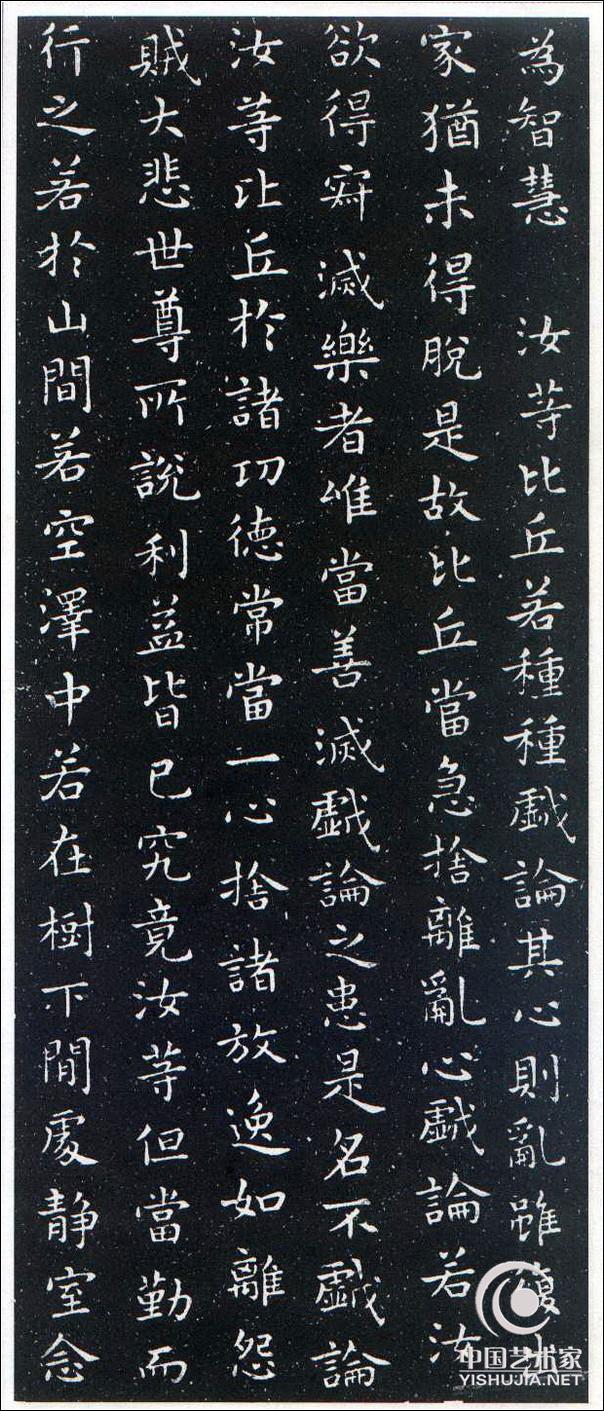 為智慧 汝等比丘若種種戲論其心則亂雖復
家猶未得脫是故比丘當急捨離亂心戲論若汝
欲得寂滅樂者唯當善滅戲論之患是名不戲論
汝等比丘於諸功德常當一心捨諸放逸如離怨
賊大悲世尊所說利益皆已究竟汝等但當勤而
行之若於山間若空澤中若在樹下閒處靜室念
中国艺术家
YISHUJIA.NET